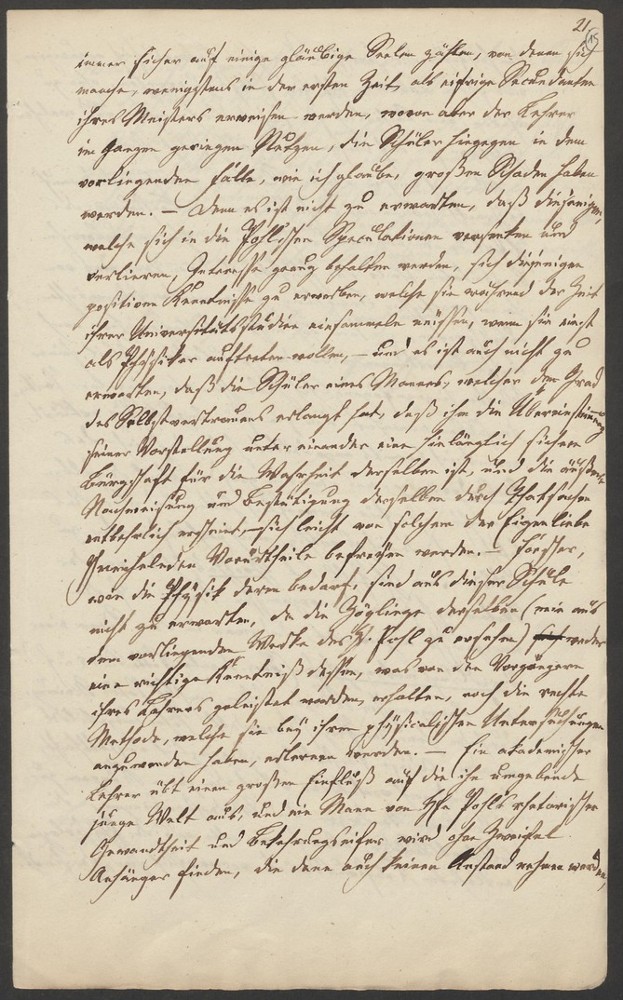 21
15
immer sicher auf einige gläubige Seelen zählen, von denen sich
manche, wenigstens in der ersten Zeit, als eifrige Secundanten
ihres Meisters erweisen werden, wovon aber der Lehrer
im Ganzen geringen Nutzen, die Schüler hingegen in dem
vorliegenden Falle, wie ich glaube, großen Schaden haben
werden. — Denn es ist nicht zu erwarten, daß diejenigen,
welche sich in die Pohlschen Speculationen versenken und
verlieren, Interesse genug behalten werden, sich diejenigen
positiven Kenntnisse zu erwerben, welche sie während der Zeit
ihrer Universitätsstudien einsammeln müssen, wenn sie einst
als Physiker auftreten wollen, — und es ist auch nicht zu
erwarten, daß die Schüler eines Mannes, welcher den Grad
des Selbstvertrauens erlangt hat, daß ihm die Übereinstimmung
seiner Vorstellung unter einander eine hinlänglich sichere
Bürgschaft für die Wahrheit derselben ist, und die äußere
Nachweisung und Bestätigung derselben durch Thatsachen
entbehrlich erscheint, sich leicht von solchen der Eigenliebe
schmeichelnden Vorurtheile befreyen werden. — Forscher,
wie die Physik deren bedarf, sind aus dieser Schule
nicht zu erwarten, da die Zöglinge derselben (wie aus
dem vorliegenden Werke des H. Pohl zu ersehen) weder
eine richtige Kenntniß dessen, was von den Vorgängern
ihres Lehrers geleistet worden, erhalten, noch die rechte
Methode, welche sie bey ihren physicalischen Untersuchungen
anzuwenden haben, erlernen werden. — Ein akademischer
Lehrer übt einen großen Einfluß auf die ihn umgebende
junge Welt aus, und ein Mann von Hn Pohls rhetorischer
Gewandtheit und Bekehrungseifer wird ohne Zweifel
Anhänger finden, die dann auch keinen Anstand nehmen werden,